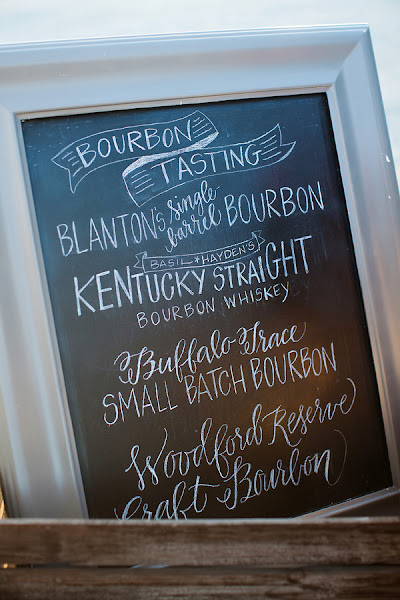 BOURBON
TASTING
BLANTON'S single barrel BOURBON
BASIL * HAYDEN'S
KENTUCKY STRAIGHT
BOURBON WHISKEY
Buffalo Trace
SMALL BATCH BOURBON
Woodford Reserve
Craft Bourbon